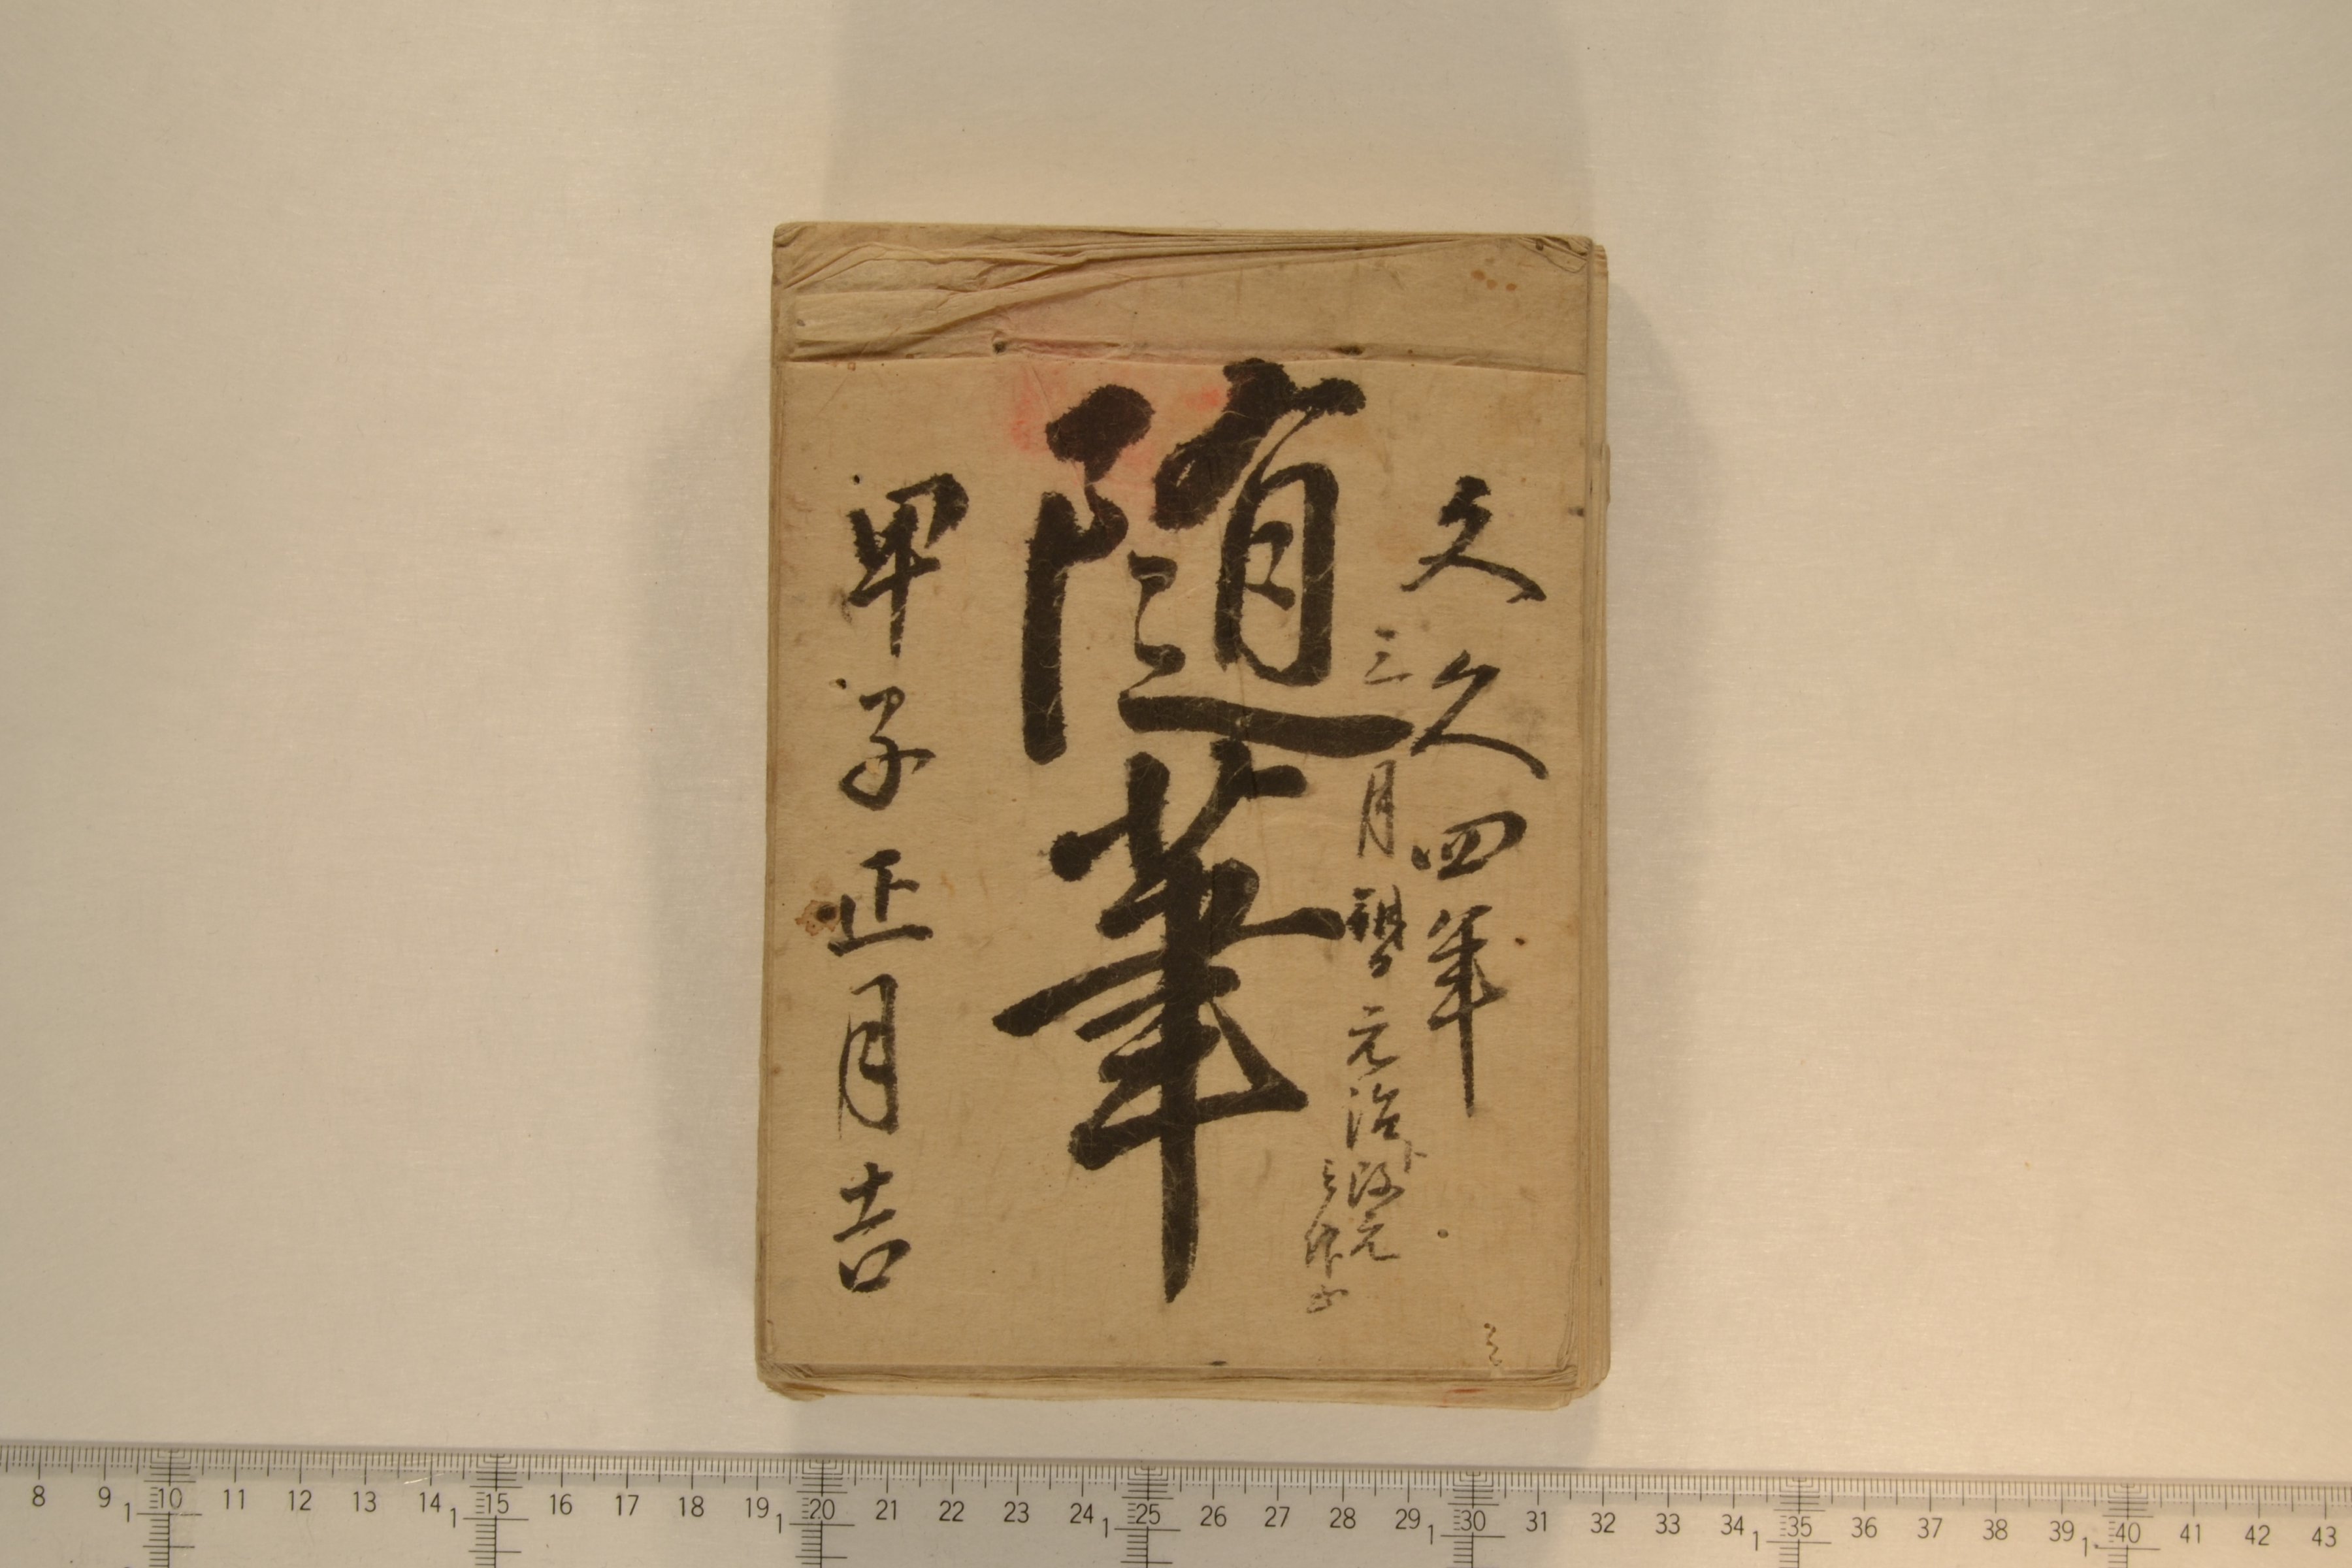 文久四年
三月 元治ト改元
随筆
甲子正月吉
8 9 10 11 12 13 14 15 16 17 18 19 20 21 22 23 24 25 26 27 28 29 30 31 32 33 34 35 36 37 38 39 40 41 42 43